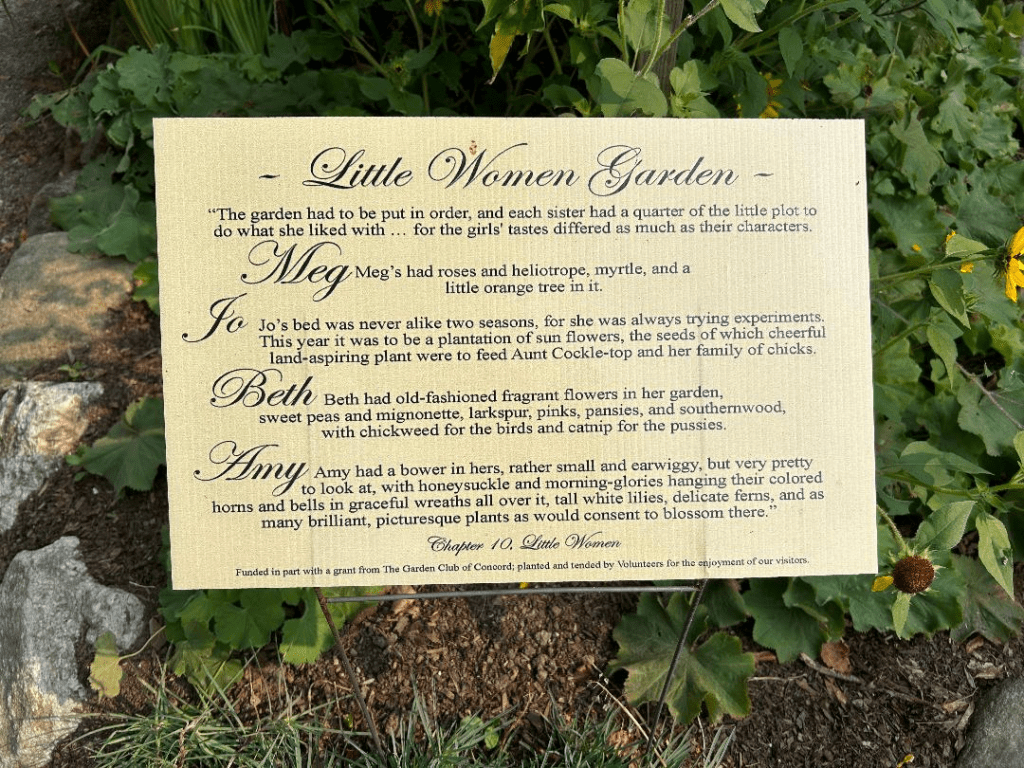 ~ Little Women Garden ~
“The garden had to be put in order, and each sister had a quarter of the little plot to
do what she liked with ... for the girls' tastes differed as much as their characters.
Meg Meg’s had roses and heliotrope, myrtle, and a
little orange tree in it.
Jo Jo’s bed was never alike two seasons, for she was always trying experiments.
This year it was to be a plantation of sun flowers, the seeds of which cheerful
land-aspiring plant were to feed Aunt Cockle-top and her family of chicks.
Beth Beth had old-fashioned fragrant flowers in her garden,
sweet peas and mignonette, larkspur, pinks, pansies, and southernwood,
with chickweed for the birds and catnip for the pussies.
Amy Amy had a bower in hers, rather small and earwiggy, but very pretty
to look at, with honeysuckle and morning-glories hanging their colored
horns and bells in graceful wreaths all over it, tall white lilies, delicate ferns, and as
many brilliant, picturesque plants as would consent to blossom there.”
Chapter 10, Little Women
Funded in part with a grant from The Garden Club of Concord; planted and tended by Volunteers for the enjoyment of our visitors.